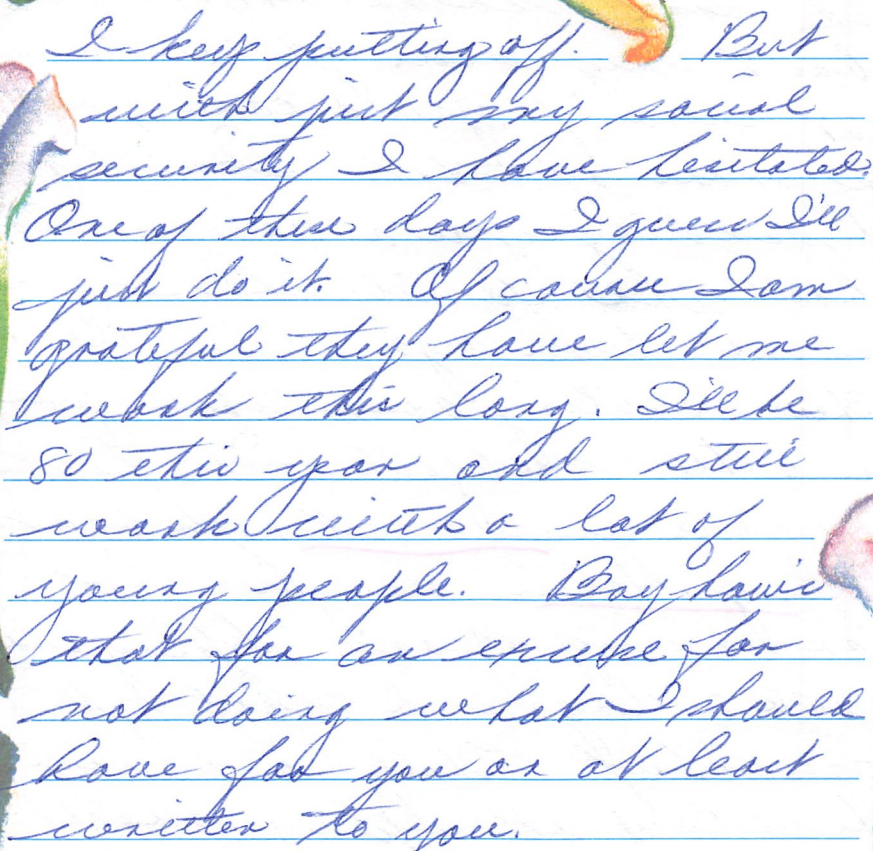 I keep putting off. But
with just my social
security I have hesitated.
One of these days I guess I'll
just do it. Of course I am
grateful they have let me
work this long. I'll be
80 this year and still
work with a lot of
young people. Boy how's
that for an excuse for
not doing what I should
have for you or at least
written to you.